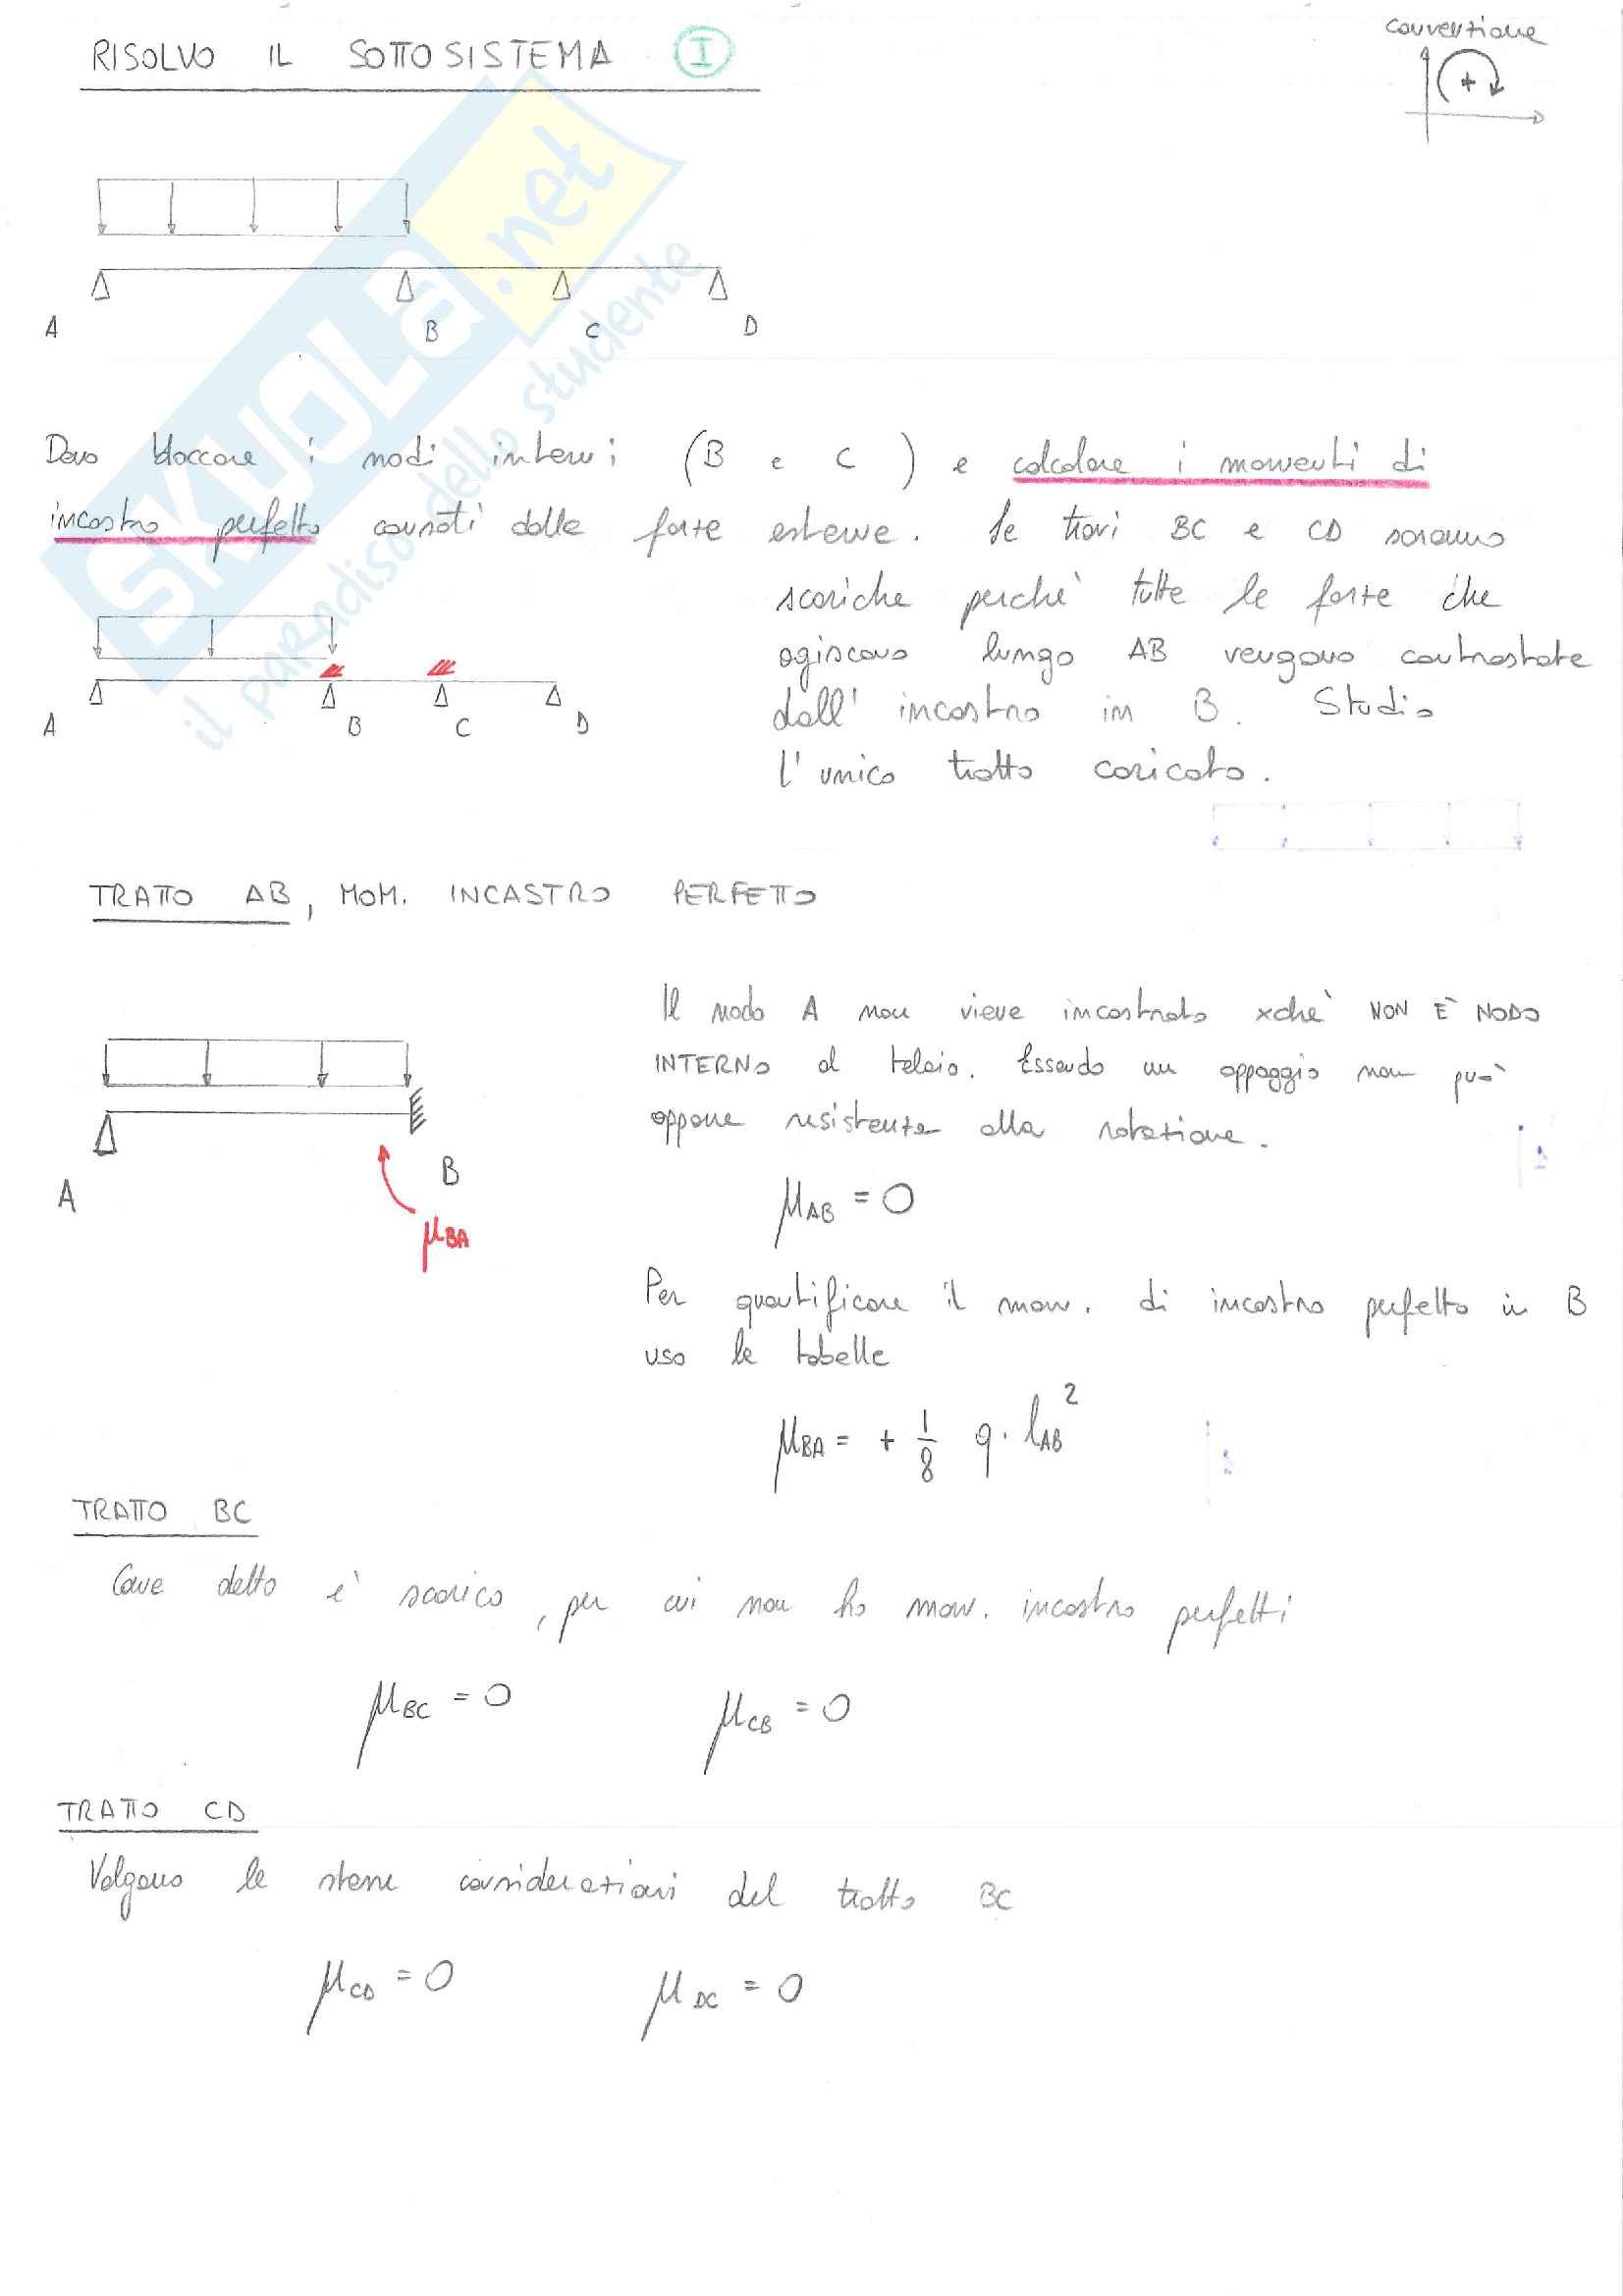 RISOLVO IL SOTTOSISTEMA I
convenzione
+
A B C D
Devo bloccare i nodi interni (B e C) e calcolare i momenti di
incastro perfetto causati dalle forze esterne. Le travi BC e CD saranno
scariche perchè tutte le forze che
agiscono lungo AB vengono contrastate
dall' incastro in B. Studio
l' unico tratto caricato.
A B C D
TRATTO AB, MOM. INCASTRO PERFETTO
Il nodo A non viene incastrato xchè NON È NODO
INTERNO al telaio. Essendo un appoggio non può
opporre resistenza alla rotazione.
A B
μBA
μAB = 0
Per quantificare il mom. di incastro perfetto in B
uso le tabelle
μBA = + 1/8 q · lAB²
TRATTO BC
Come detto è scarico, per cui non ho mom. incastro perfetti
μBC = 0 μCB = 0
TRATTO CD
Valgono le stesse considerazioni del tratto BC
μCD = 0 μDC = 0
SKUOLA.net
il paradiso dello studente